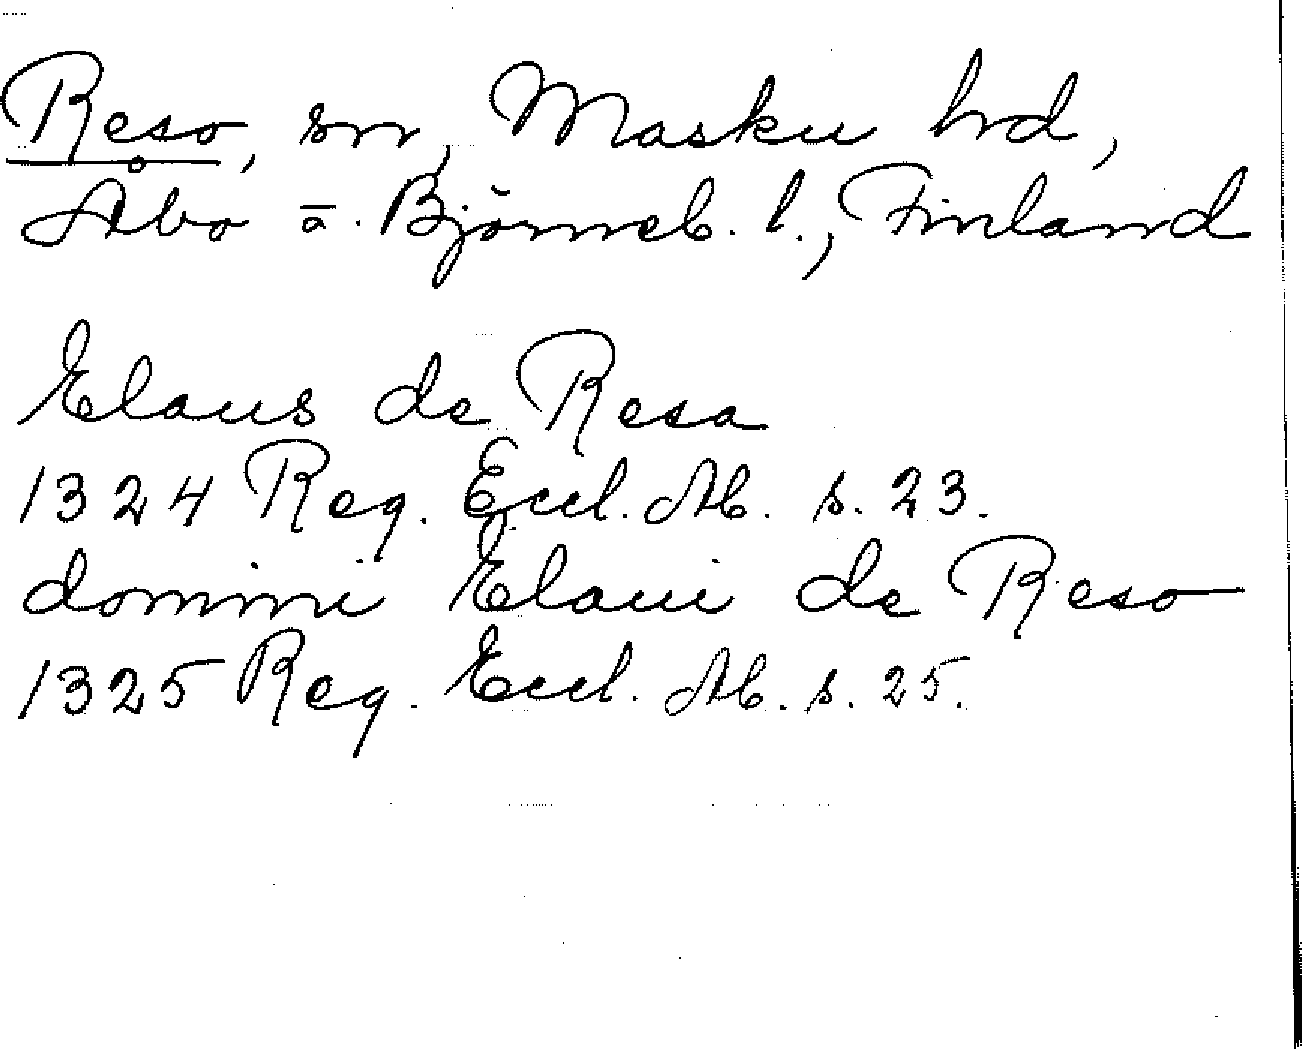 Reso, sn, Masku hrd,
Åbo o. Björneb. l., Finland
Elaus de Resa
1324 Reg. Eccl. Ab. s. 23.
domini Elaui de Reso
1325 Reg. Eccl. Ab. s. 25.